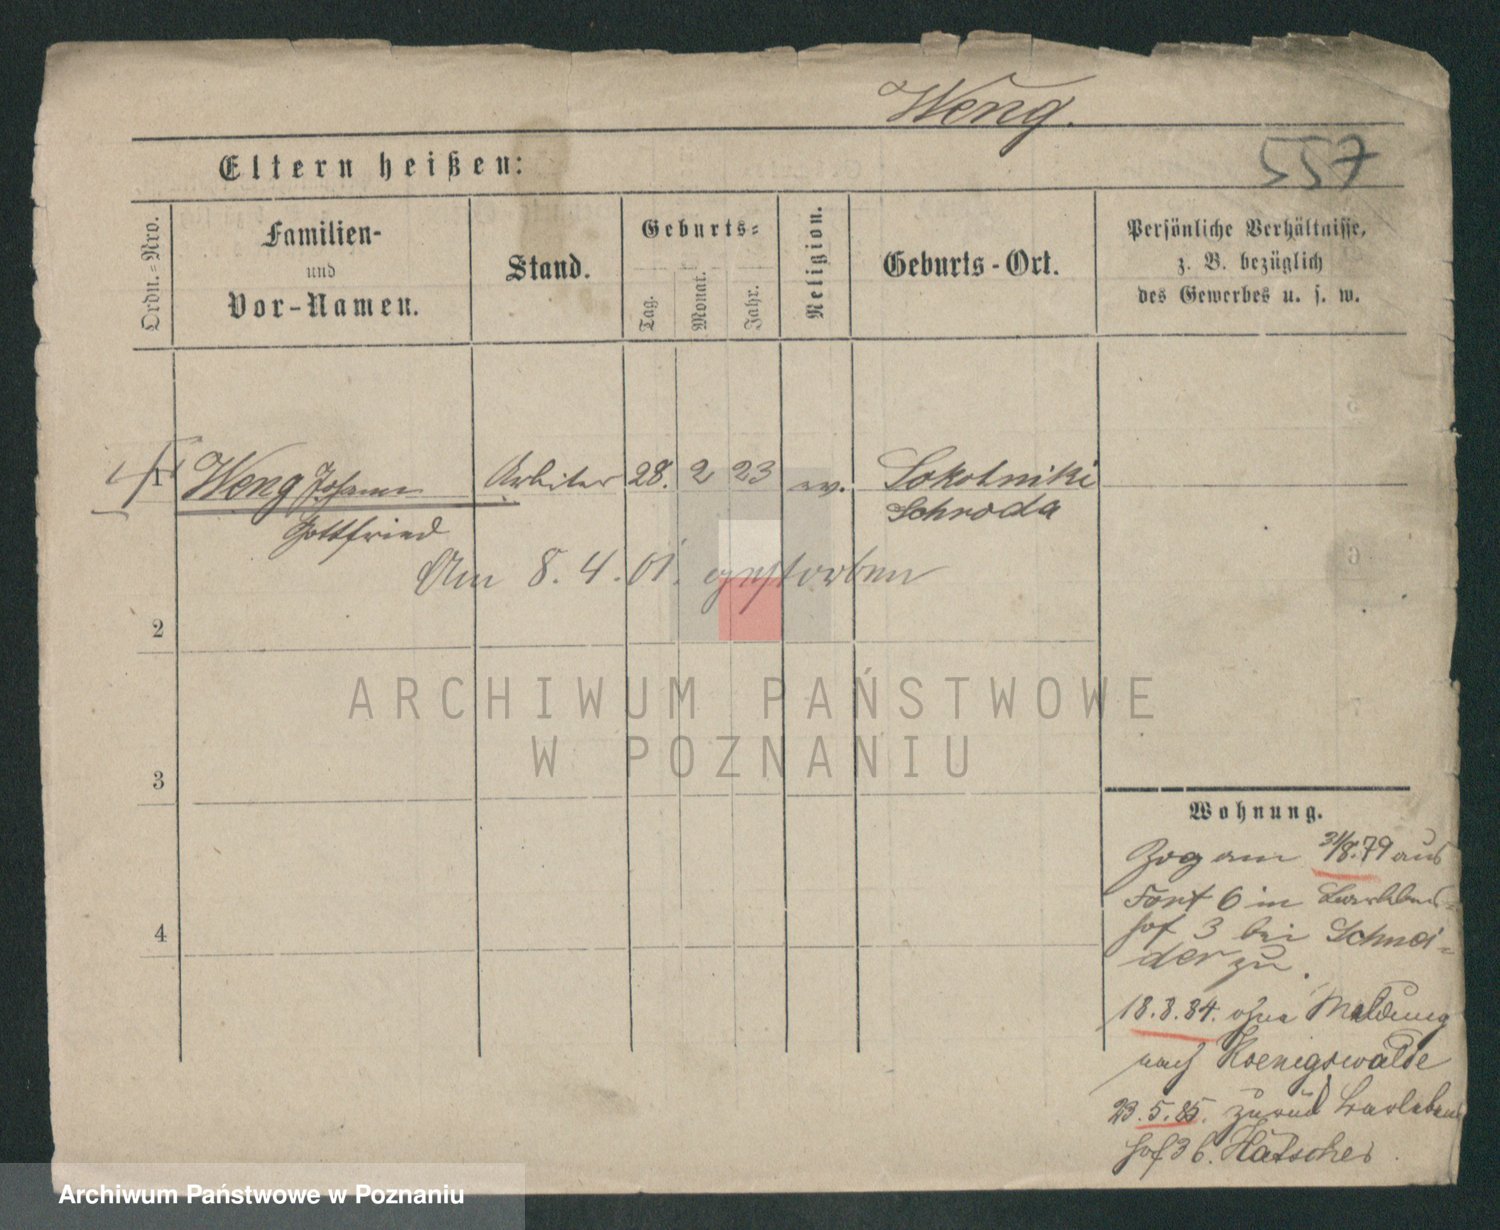 Weng.
557
Eltern heißen:
Ordn.=Nro.
Familien-
und
Vor-Namen.
Stand.
Geburts=
Tag.
Monat.
Jahr.
Religion.
Geburts-Ort.
Persönliche Verhältnisse,
z. B. bezüglich
des Gewerbes u. s. w.
1 Weng Johann Arbeiter 28. 2 23 ev. Sokolniki
Gottfried Schroda
Am 8. 4. 01. gestorben
2
3
4
ARCHIWUM PAŃSTWOWE
W POZNANIU
Wohnung.
Zog am 31/8.79 aus
Fort 6 in Barleben=
hof 3 bei Schnei=
der zu.
18.8.84. ohne Meldung
nach Koenigswalde
23.5.85. zurück Barlebens
hof 3 b.
Archiwum Państwowe w Poznaniu